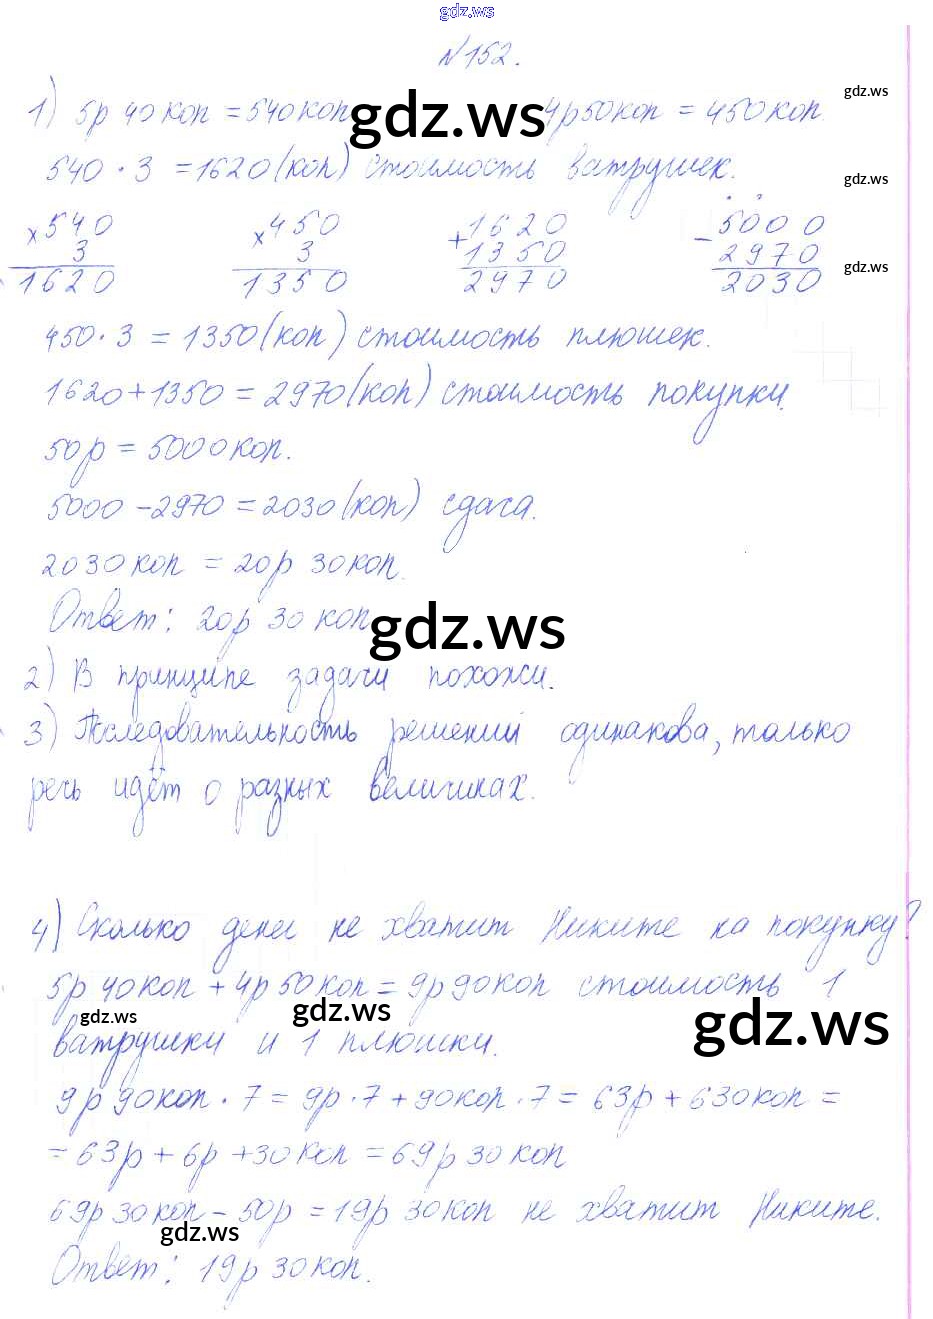 gdz.ws
N152.
1) 5р 40 коп = 540 коп 4р 50 коп = 450 коп
gdz.ws
gdz.ws
540 · 3 = 1620 (коп) стоимость ватрушек.
gdz.ws
× 540 × 450 + 1620 - 5000
3 3 1350 2970
1620 1350 2970 2030
gdz.ws
450 · 3 = 1350 (коп) стоимость плюшек.
1620 + 1350 = 2970 (коп) стоимость покупки.
50р = 5000 коп.
5000 - 2970 = 2030 (коп) сдача.
2030 коп = 20р 30 коп.
Ответ: 20р 30 коп
gdz.ws
2) В принципе задачи похожи.
3) Последовательность решений одинакова, только
речь идёт о разных величинах.
4) Сколько денег не хватит Никите на покупку?
5р 40 коп + 4р 50 коп = 9р 90 коп стоимость 1
gdz.ws
gdz.ws
gdz.ws
ватрушки и 1 плюшки.
9р 90 коп · 7 = 9р · 7 + 90 коп · 7 = 63р + 630 коп =
= 63р + 6р + 30 коп = 69р 30 коп
69р 30 коп - 50р = 19р 30 коп не хватит Никите.
gdz.ws
Ответ: 19р 30 коп.